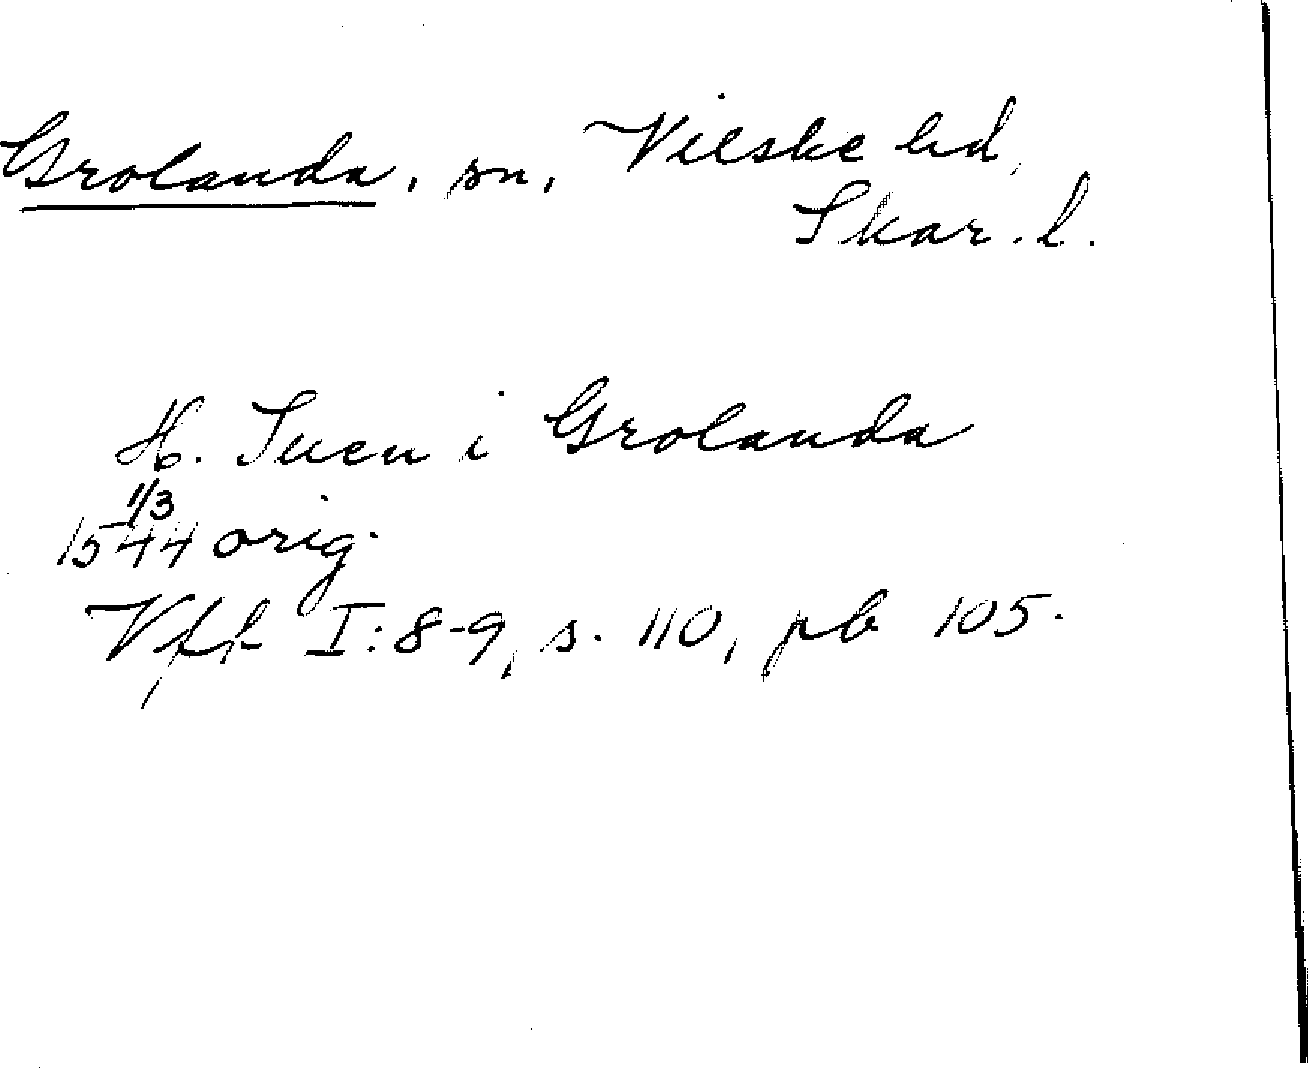 Grolanda, sn, Vilske hd,
Skar. l.
H. Suen i Grolanda
1/3
1544 orig.
Vff I: 8-9, s. 110, pb 105.